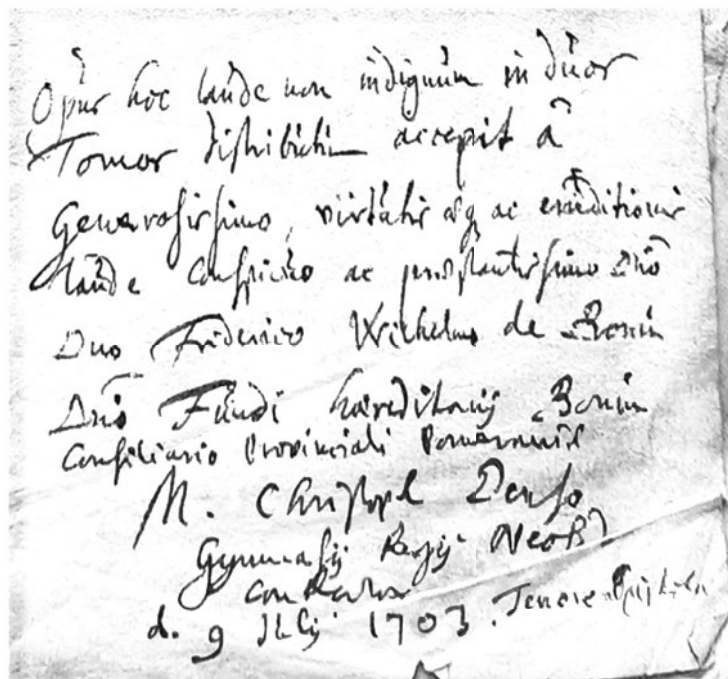 Opus hoc laude non indignum in duos
Tomos distributum accepit â
Generosissimo, virtutis atq ac eruditionis
laude conspicuo ac præstantissimo Dno
Dno Friderico Wilhelmo de Bonin
Dno Fundi hæreditarij Bonin
Consiliario Provinciali Pomeraniæ
M. Christoph Denso
Gymnasij Regij Neos
ConRector
d. 9 July 1703. Tenore Epistolæ